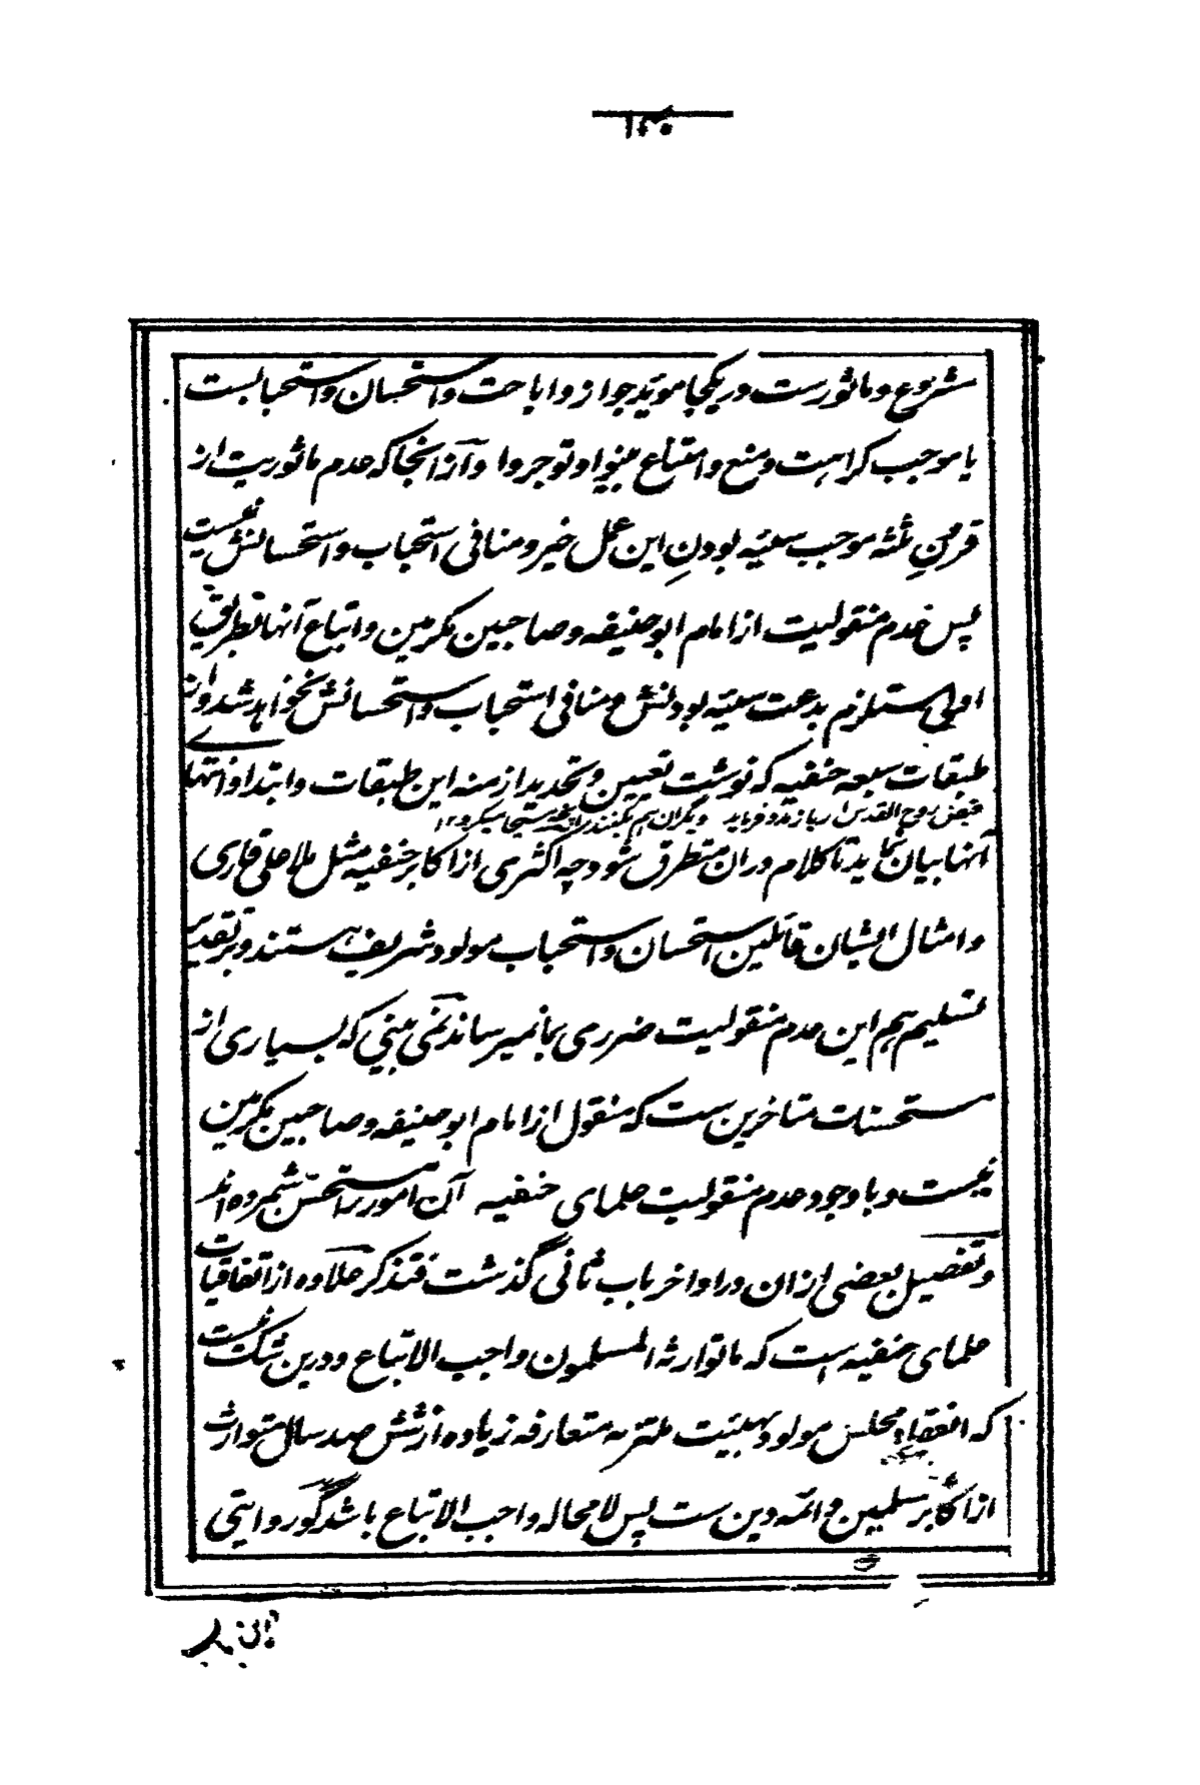 مشروع و ماثورست و ریکجا موید جواز و اباحت و استحسان و استحبابست
یا موجب کراهت و منع و امتناع بینوا و توجروا و آز آنجا که عدم ماثوریت از
قرون ثلثه موجب سیئه بودنِ این عمل خیر و منافی استحباب و استحسانش نیست
پس عدم منقولیت از امام ابو حنیفه و صاحبین مکرمین و اتباع آنها بطریق
اولی مستلزم بدعت سیئه بودنش و منافی استحباب و استحسانش نخواهد شد و از
طبقات سبعه حنفیه که نوشت تعیین و تحدید از منه این طبقات و ابتدا و انتهای
فیض روح القدس ار باز مدد فرماید دیگران هم بکنند آنچه مسیحا میکرد ۱۲
آنها بیان نماید تا کلام دران متطرق شود چه اکثری از اکابر حنفیه مثل ملا علی قاری
و امثال ایشان قائلین استحسان و استحباب مولود شریف هستند و بر تقدیر
تسلیم هم این عدم منقولیت ضرری بما نمیرساند نمی بینی که بسیاری از
مستحسنات متاخرین ست که منقول از امام ابو حنیفه و صاحبین مکرمین
نیست و با وجود عدم منقولیت علمای حنفیه آن امور را مستحسن شمرده اند
و تفصیل بعضی ازان در اواخر باب ثانی گذشت فتذکر علاوه از اتفاقیات
علمای حنفیه است که ما توارثه المسلمون واجب الاتباع و درین شک نیست
که انعقاد مجلس مولود بهیئت ملتزمه متعارفه زیاده از شش صد سال متوارث
از اکابر مسلمین و ائمه دین ست پس لا محاله واجب الاتباع باشد گو روایتی